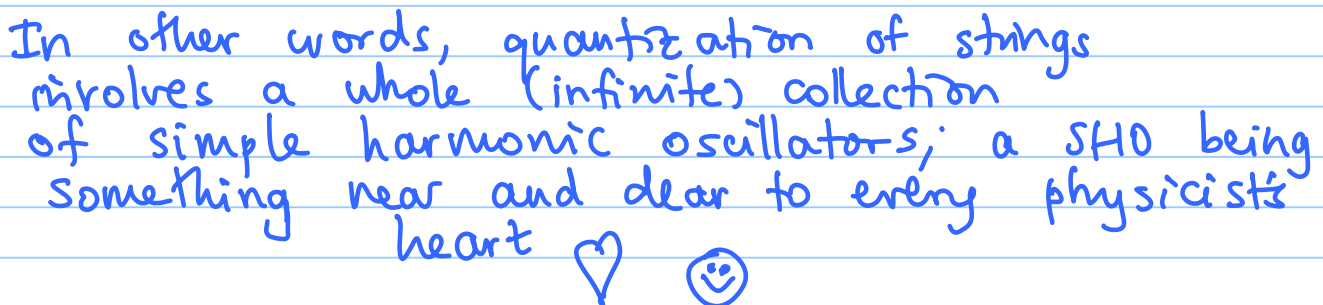 In other words, quantization of strings
involves a whole (infinite) collection
of simple harmonic oscillators; a SHO being
something near and dear to every physicist's
heart ♡ ☺